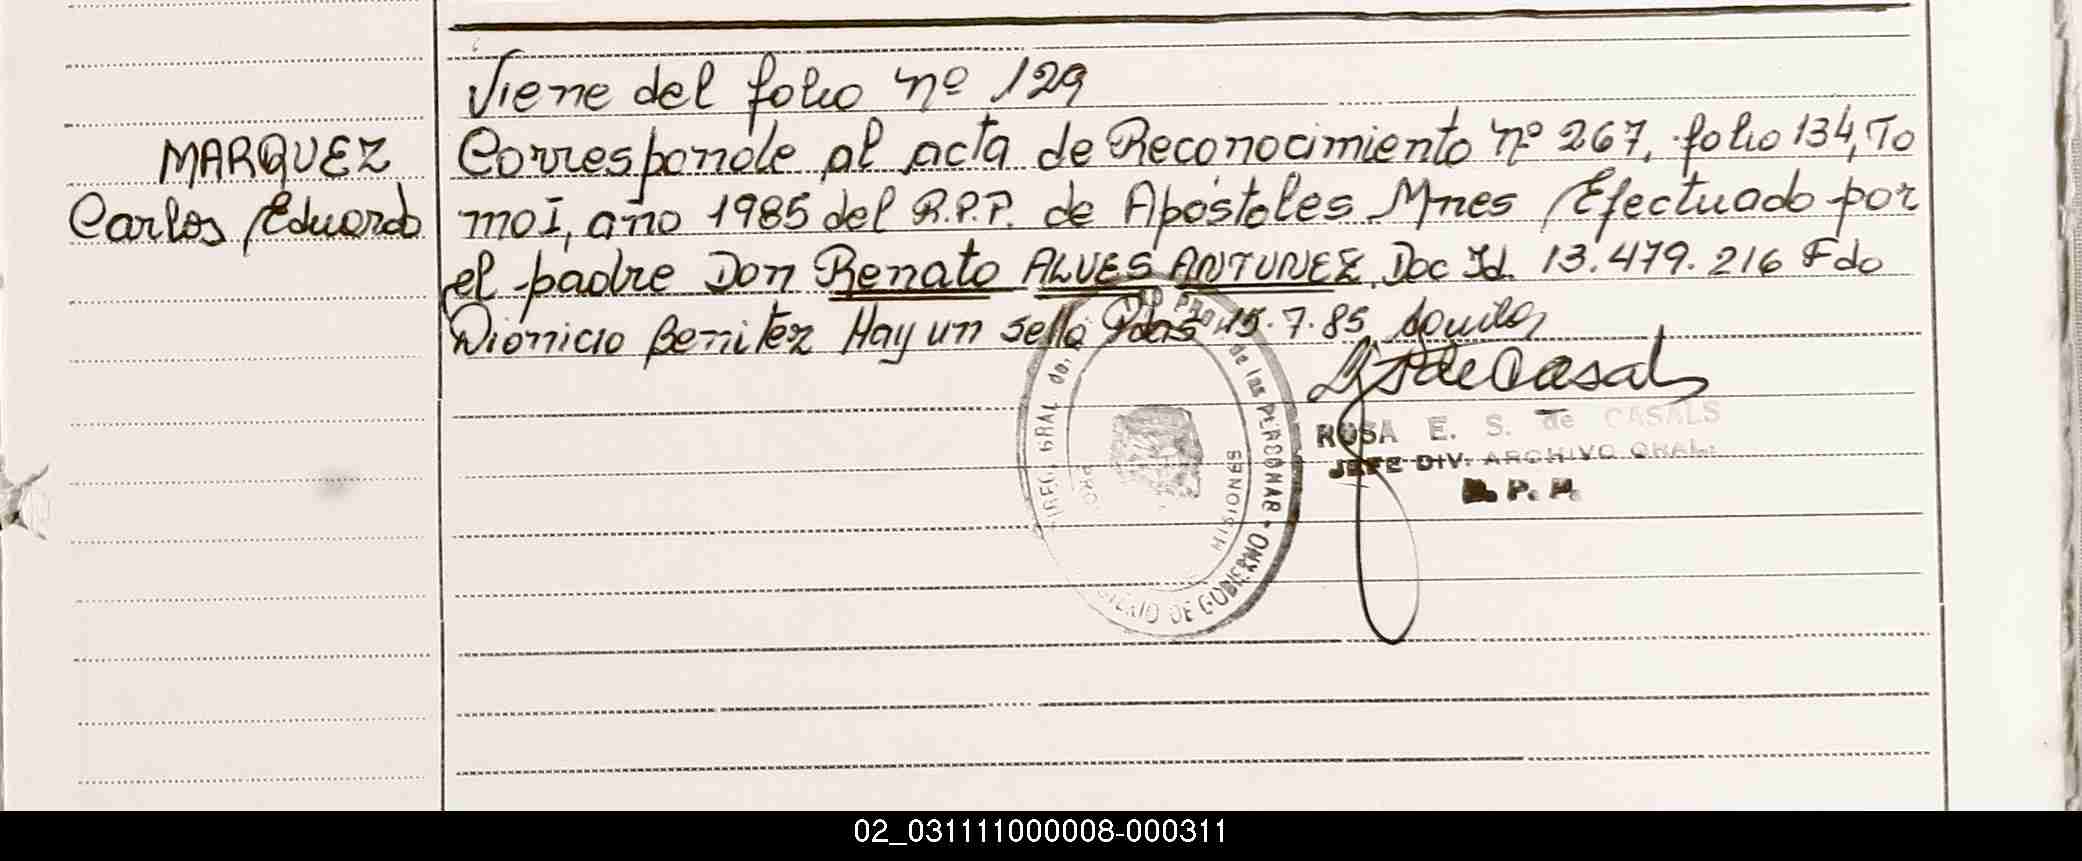 Viene del folio nº 129
MARQUEZ
Carlos Eduardo
Corresponde al acta de Reconocimiento nº 267, folio 134, To
mo I, año 1985 del R.P.P. de Apóstoles Mnes Efectuado por
el padre Don Renato ALVES ANTUNEZ, Doc Id. 13.479.216 Fdo
Dionicio Benitez Hay un sello Pdas 15.7.85
ROSA E. S. de CASALS
JEFE DIV. ARCHIVO GRAL.
R. P. P.
GRAL de las PERSONAS • MINISTERIO DE GOBIERNO
MISIONES
02_031111000008-000311